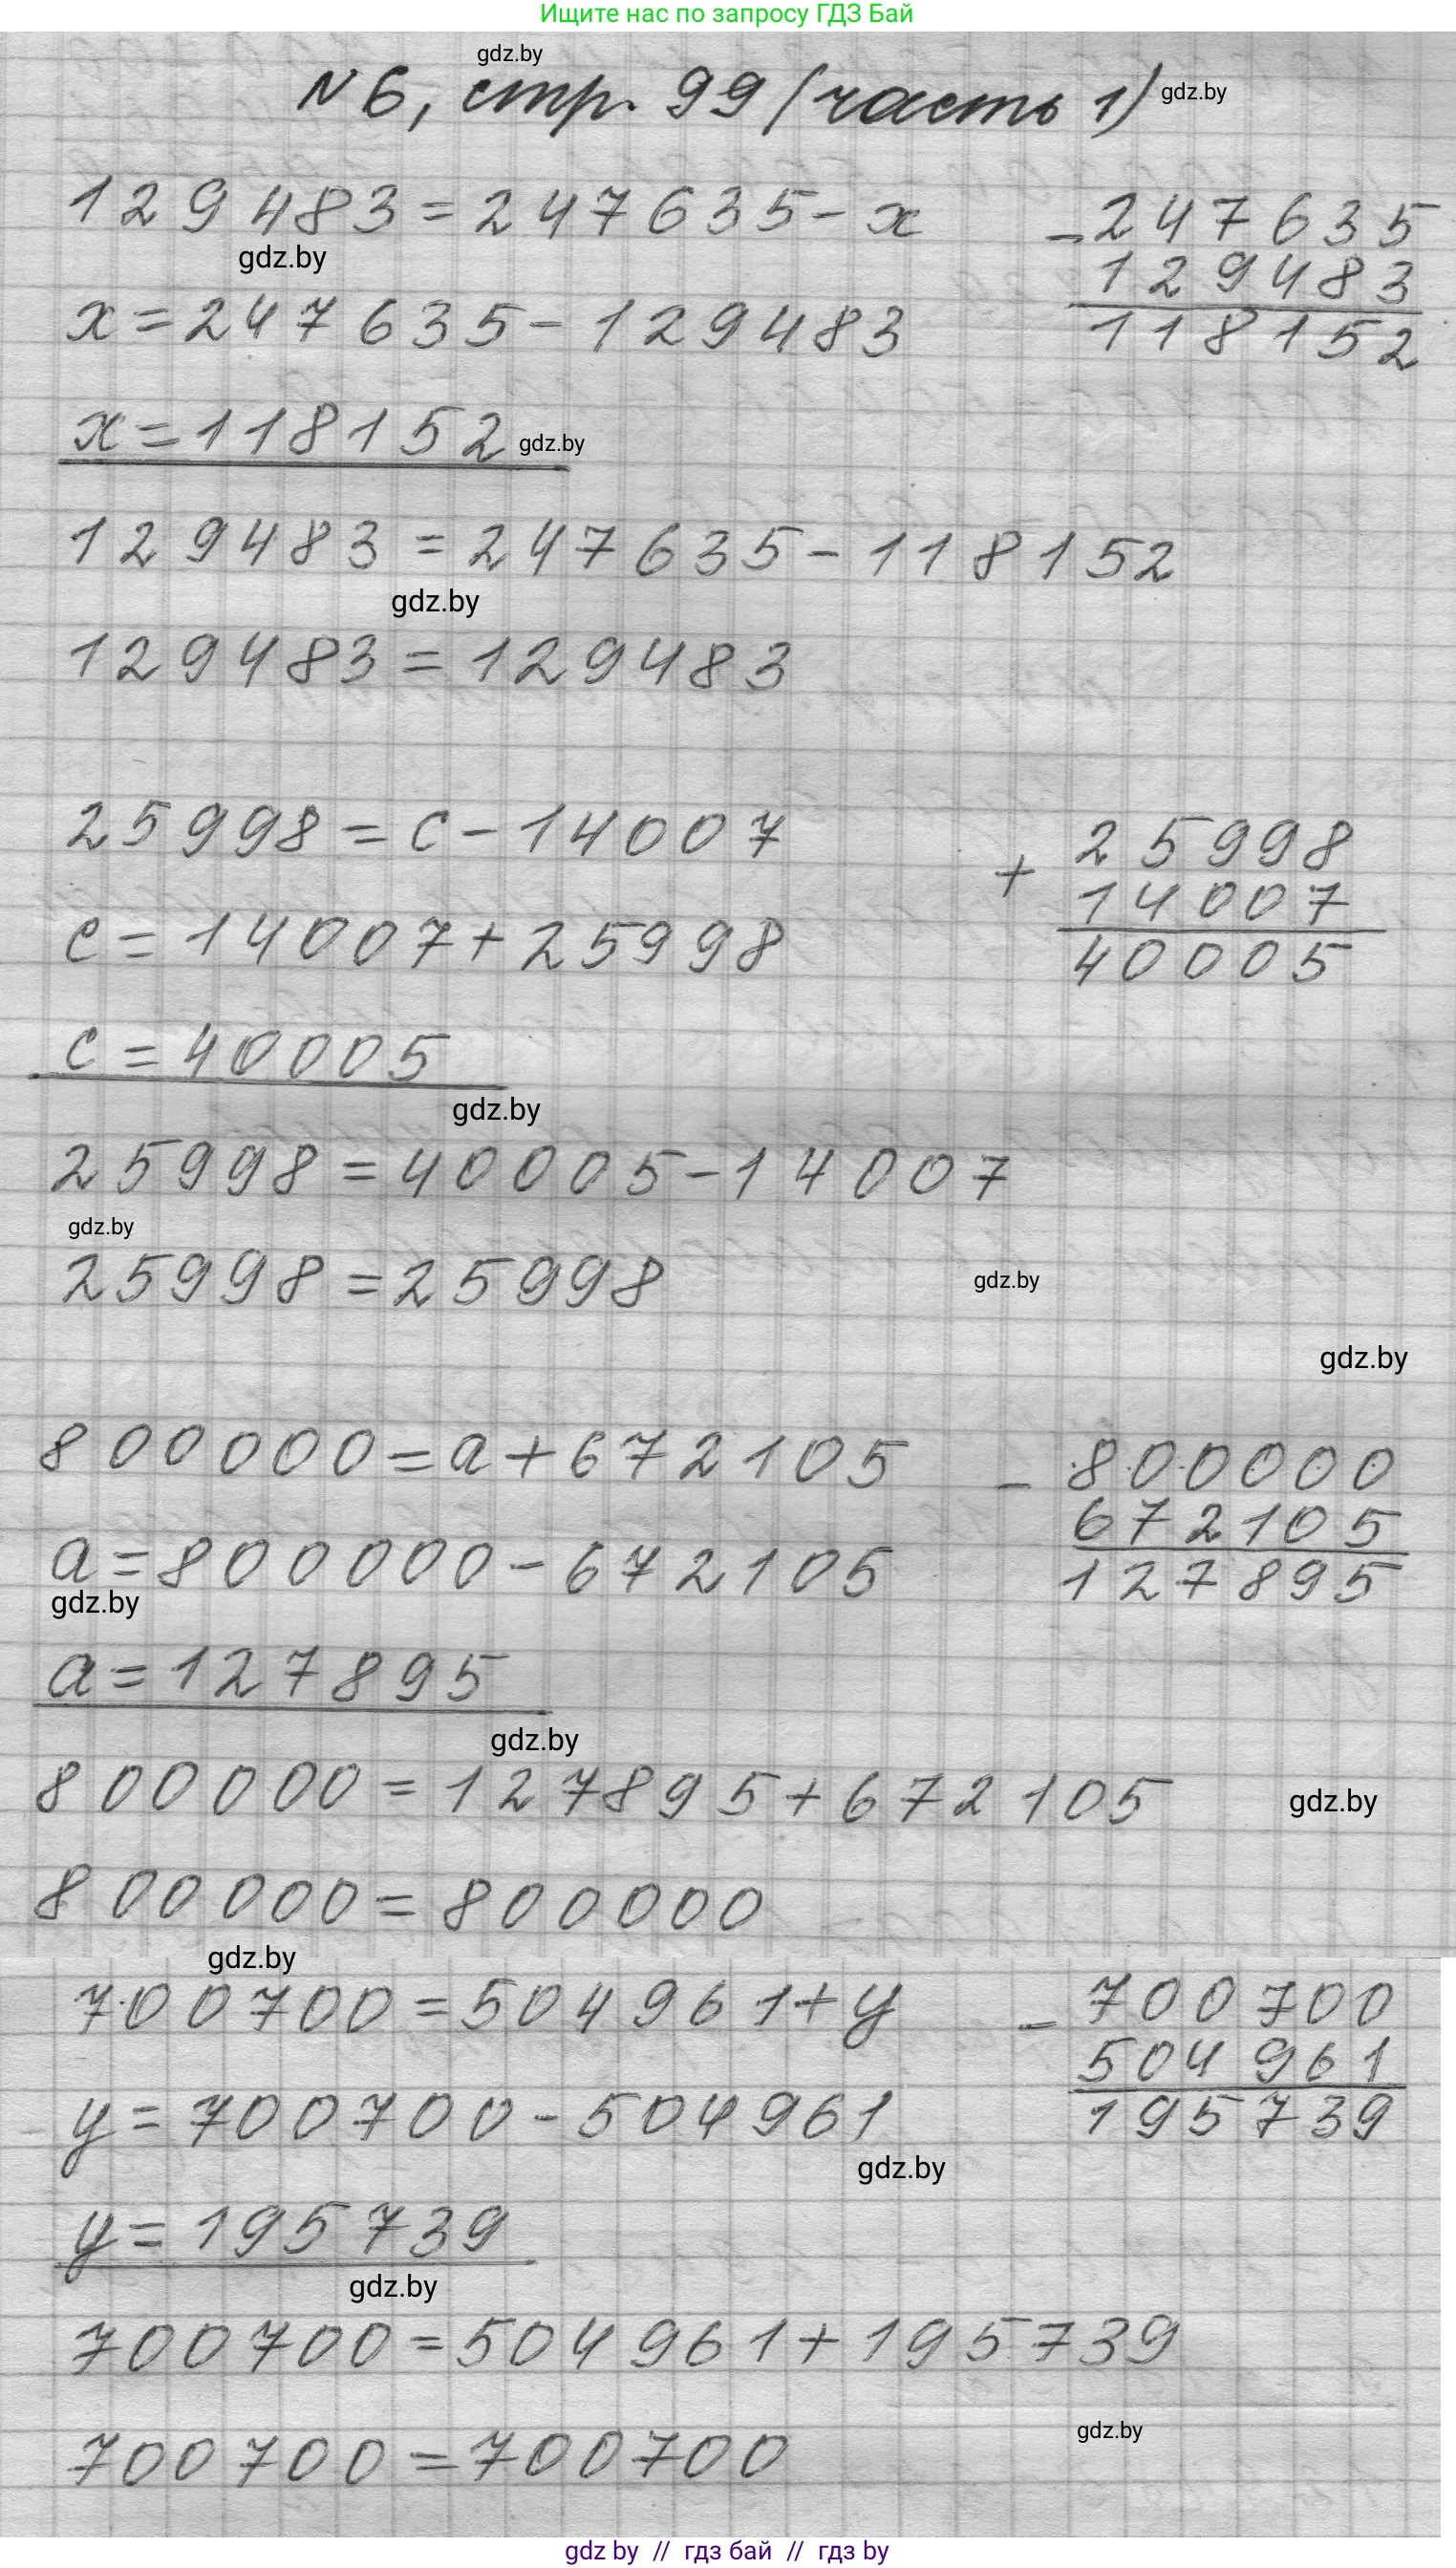 Ищите нас по запросу ГДЗ Бай
gdz.by
N 6, стр. 99 (часть 1)
gdz.by
129483=247635-x
-247635
129483
118152
gdz.by
x=247635-129483
x=118152
gdz.by
129483=247635-118152
gdz.by
129483=129483
25998=c-14007
+25998
14007
40005
c=14007+25998
c=40005
gdz.by
25998=40005-14007
gdz.by
25998=25998
gdz.by
gdz.by
800000=a+672105
-800000
672105
127895
a=800000-672105
gdz.by
a=127895
gdz.by
800000=127895+672105
gdz.by
800000=800000
gdz.by
700700=504961+y
-700700
504961
195739
y=700700-504961
gdz.by
y=195739
gdz.by
700700=504961+195739
gdz.by
700700=700700
gdz by // гдз бай // гдз by